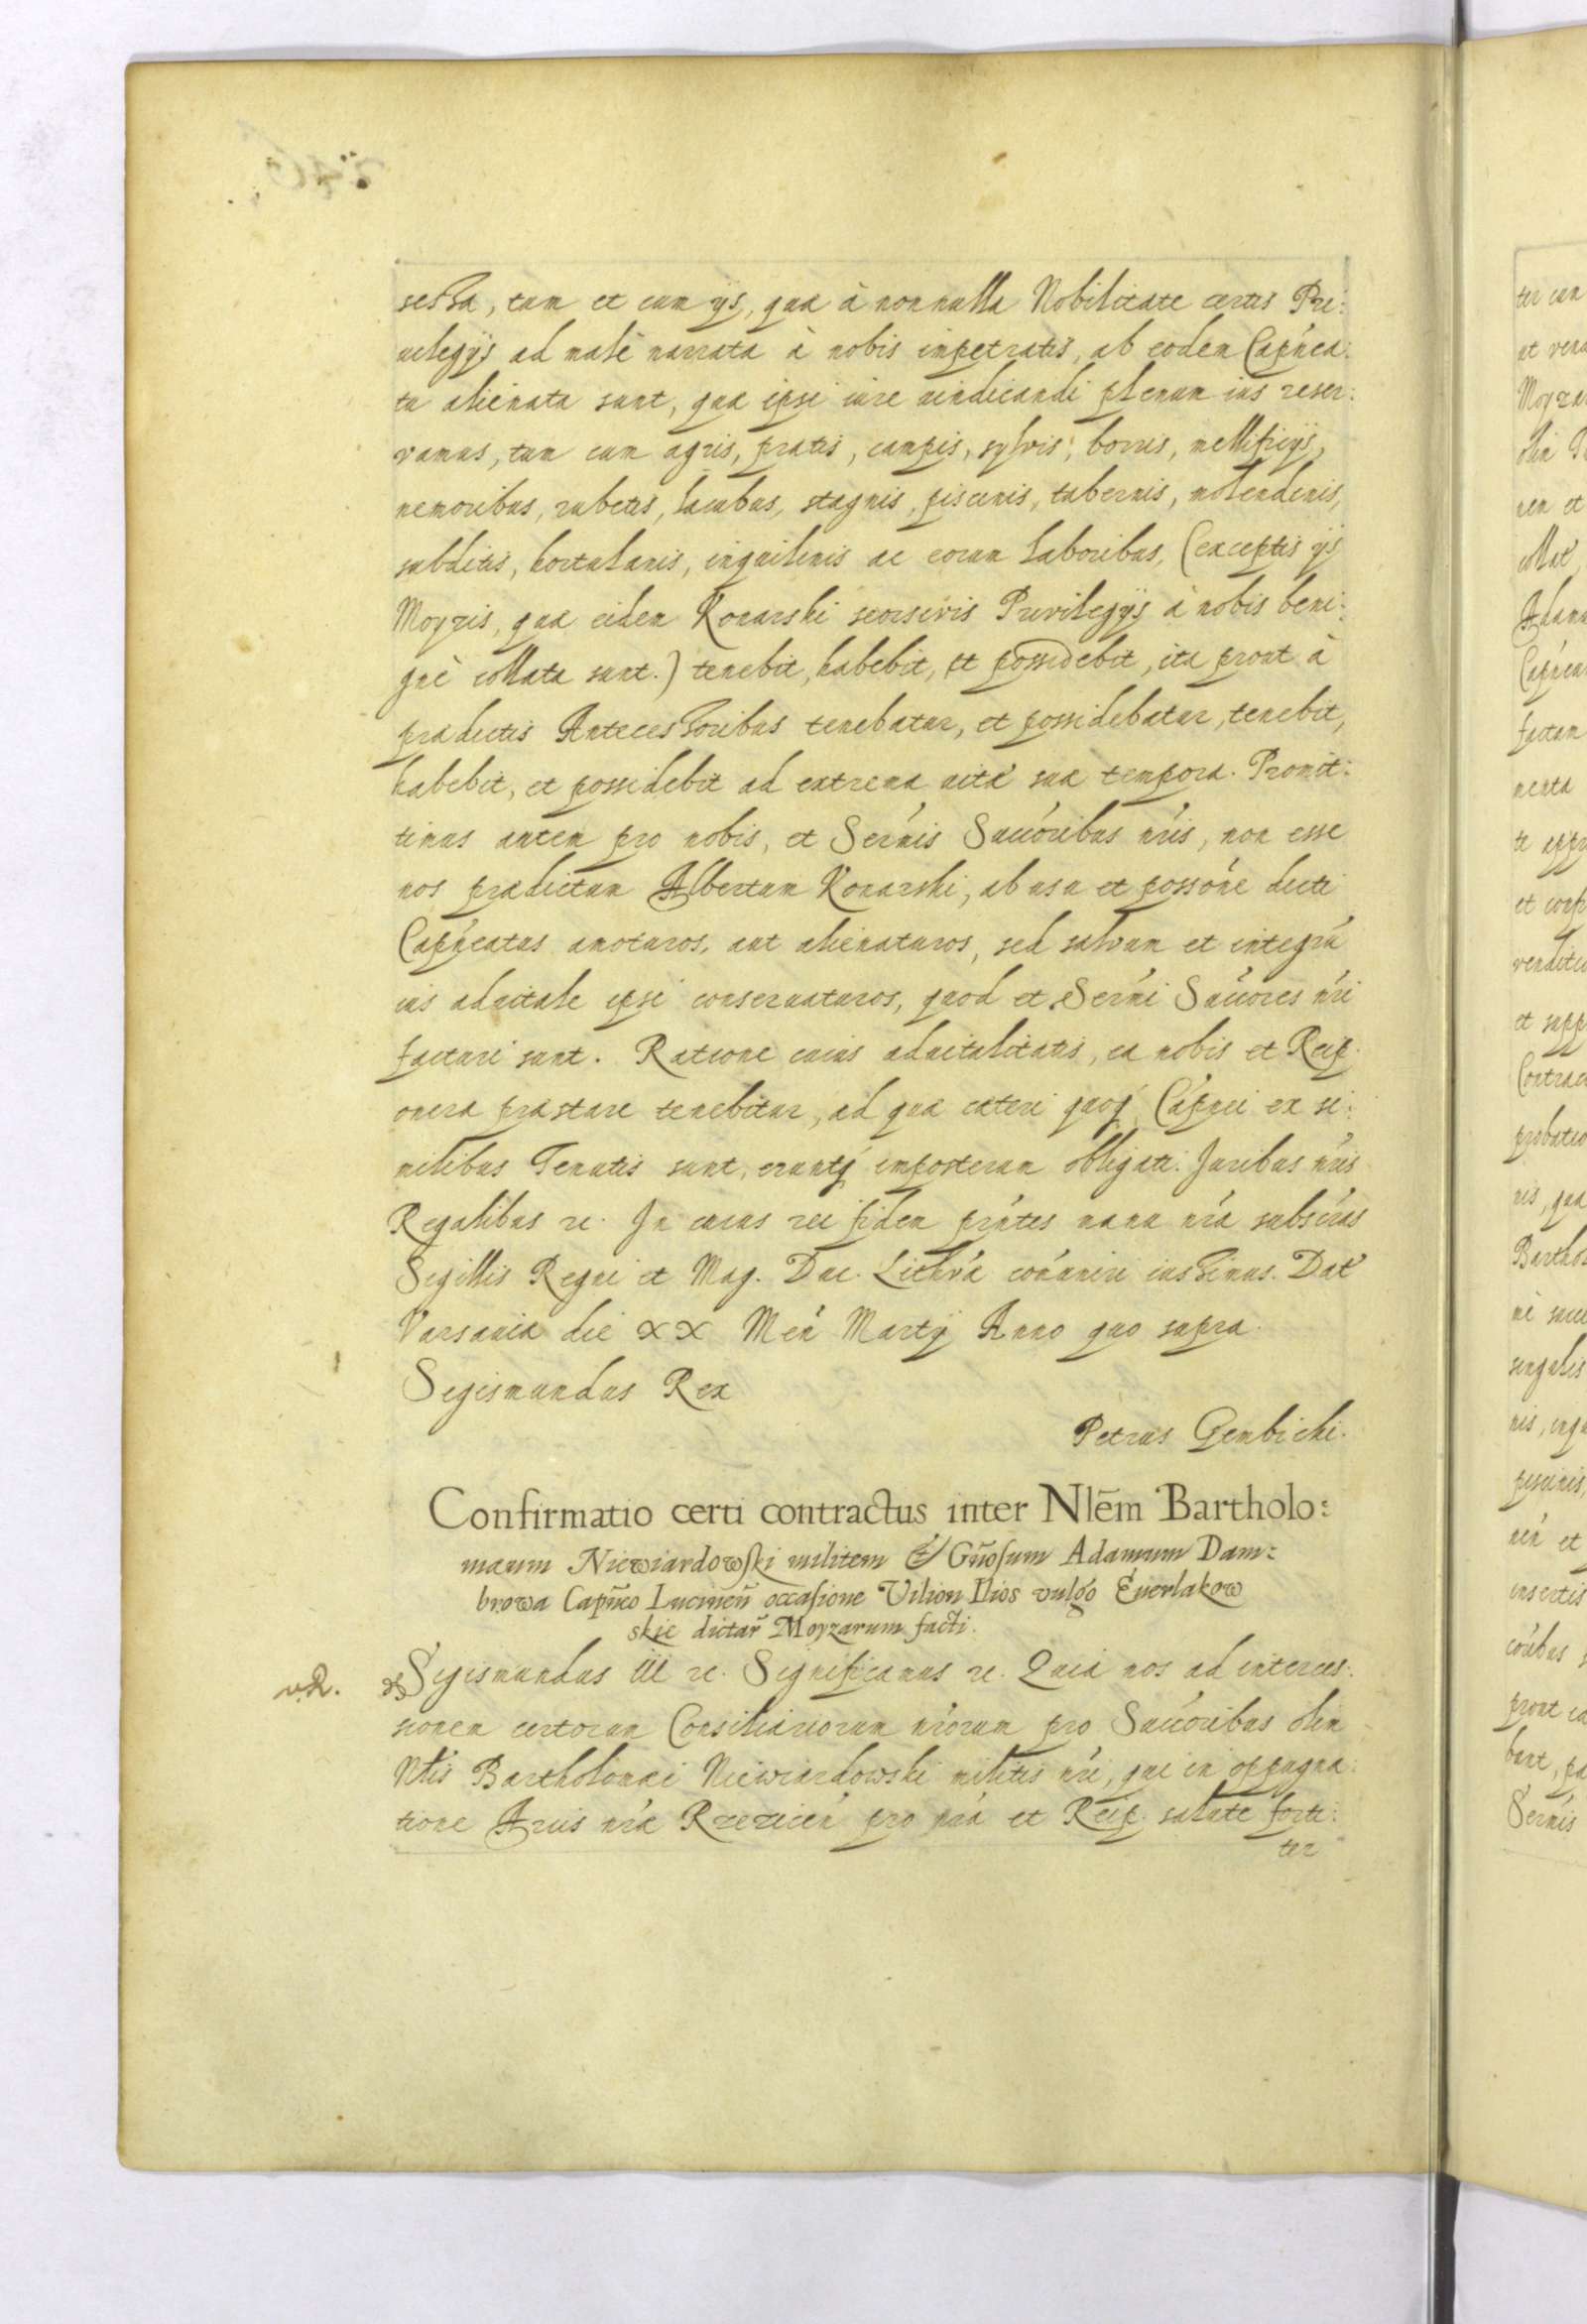 sessa, tum et cum ijs, quæ à nonnulla Nobilitate certis Pri:
uilegijs ad malè narrata à nobis impetratis, ab eodem Capnea:
tu alienata sunt, quæ ipsi iure uindicandi plenum ius reser:
vamus, tum cum agris, pratis, campis, sylvis, borris, mellificijs,
nemoribus, rubetis, lacubus, stagnis, piscinis, tabernis, molendinis,
subditis, hortulanis, inquilinis ac eorum laboribus, (exceptis ijs
Moyzis, quæ eidem Konarski seorsivis Privilegijs à nobis beni:
gnè collata sunt.) tenebit, habebit, et possidebit, ita prout à
prædictis Antecessoribus tenebatur, et possidebatur, tenebit,
habebit, et possidebit ad extrema uitæ suæ tempora. Promit:
timus autem pro nobis, et Serńis Succ̃oribus nr̃is, non esse
nos prædictum Albertum Konarski, ab usu et possõne dicti
Capñeatus amoturos, aut alienaturos, sed salvum et integrũ
ius aduitale ipsi conseruaturos, quod et Serñi Succ̃ores nr̃i
facturi sunt. Ratione cuius aduitalitatis, ea nobis et Reip.
onera præstare tenebitur, ad quæ cæteri quoq́ Capñei ex si:
milibus Tenutis sunt, eruntq́ imposterum obligati. Juribus nr̃is
Regalibus ꝛc. In cuius rei fidem pr̃ntes manu nr̃a subscr̃as
Sigillis Regni et Mag. Duc. Lithvæ com̃uniri iussimus. Dat̃
Varsauiæ die XX Meñ Martij Anno quo supra.
Sigismundus Rex
Petrus Gembicki.
Confirmatio certi contractus inter Nlẽm Bartholo:
mæum Niewiardowski militem & Gñosum Adamum Dam:
browa Capñeo Lucineñ occasione Vilion Ilios vulgo Euerlakow
skie dictar̃ Moyzarum facti.
Sigismundus III ꝛc. Significamus ꝛc. Quia nos ad interces:
sionem certorum Consiliariorum nr̃orum pro Succ̃oribus olim
Nlis Bartholomæi Niewiardowski militis nr̃i, qui in oppugna:
tione Arcis nr̃æ Rzezicen̄ pro nr̃a et Reip. salute forti:
ter